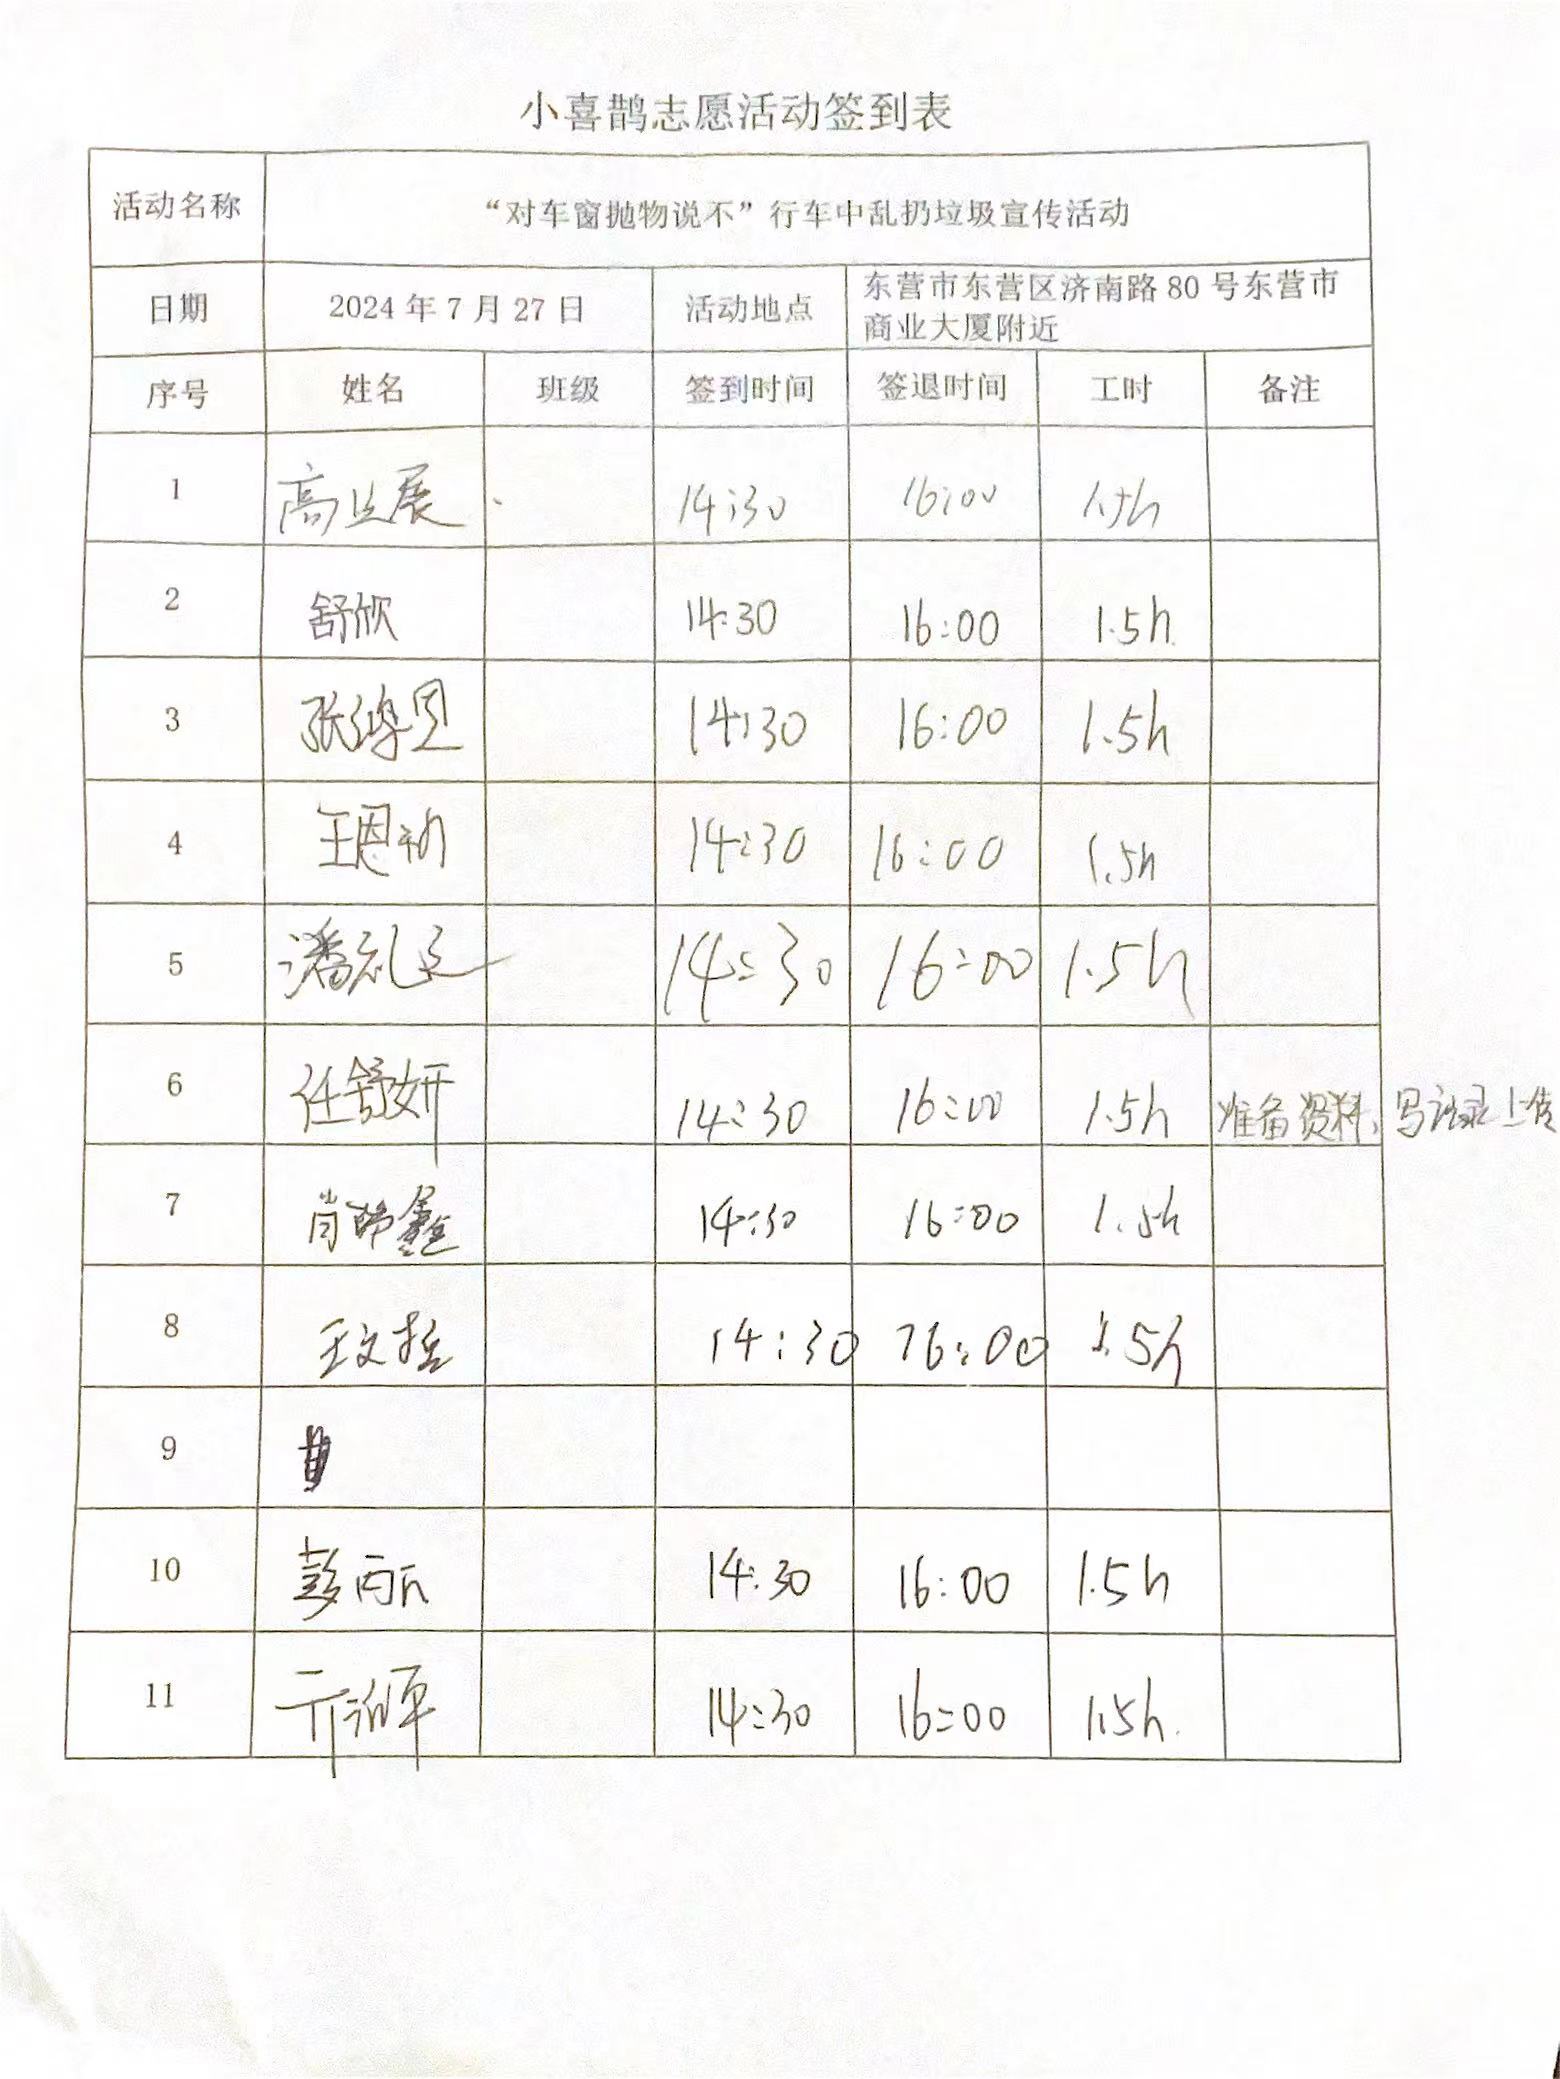 小喜鹊志愿活动签到表
活动名称 “对车窗抛物说不”行车中乱扔垃圾宣传活动
日期 2024年7月27日 活动地点 东营市东营区济南路80号东营市
商业大厦附近
序号 姓名 班级 签到时间 签退时间 工时 备注
1 14:30 16:00 1.5h
2 舒欣 14:30 16:00 1.5h
3 14:30 16:00 1.5h
4 14:30 16:00 1.5h
5 14:30 16:00 1.5h
6 任舒妍 14:30 16:00 1.5h 准备资料、写记录上传
7 14:30 16:00 1.5h
8 14:30 16:00 1.5h
9
10 14:30 16:00 1.5h
11 14:30 16:00 1.5h